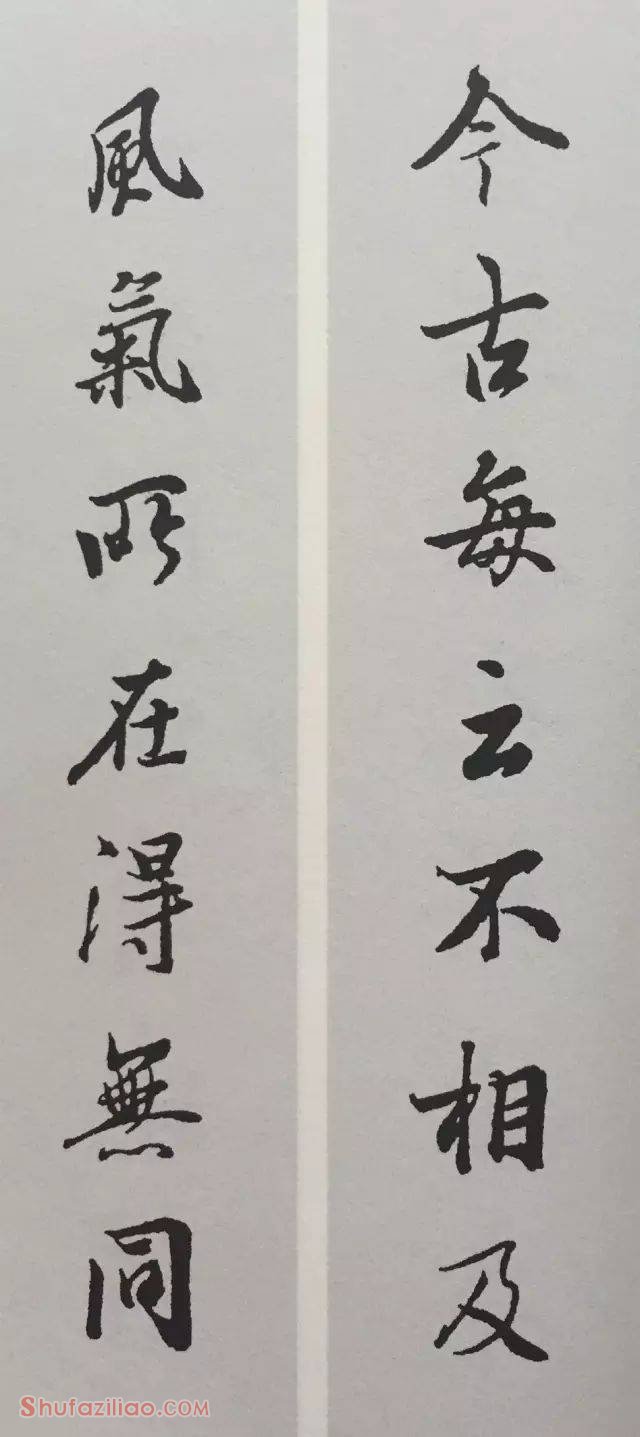 今古每云不相及
風氣所在得無同
Shufaziliao.com